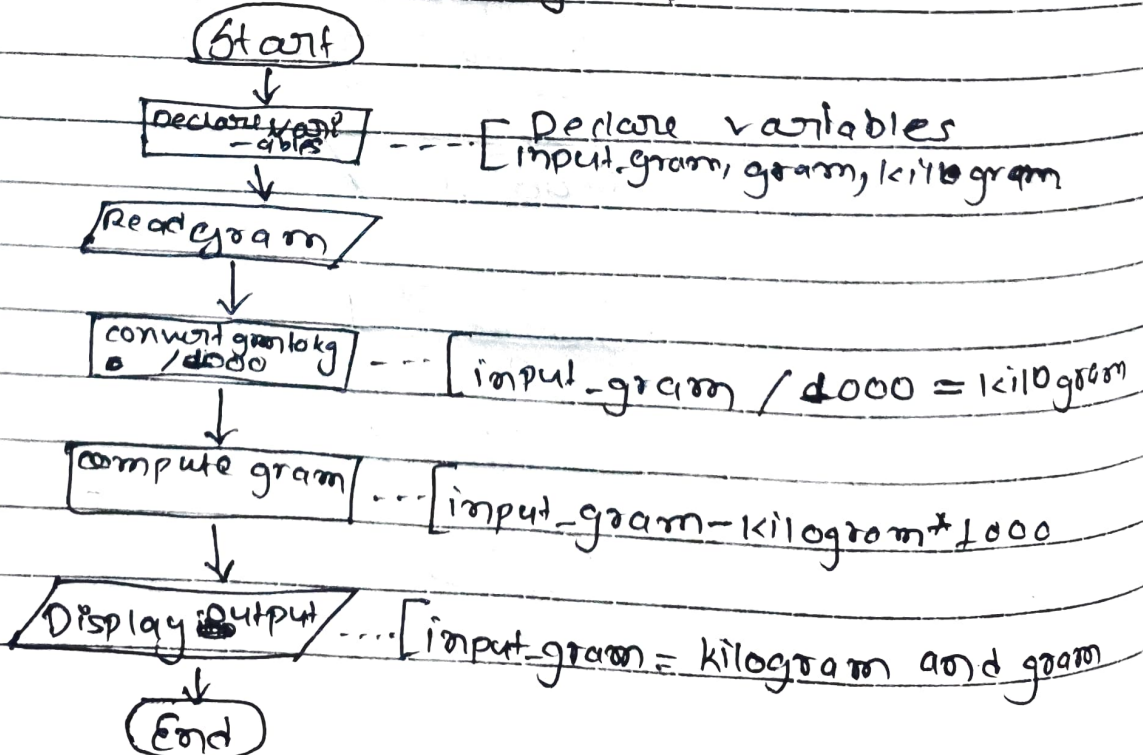 Start
Declare vari
-ables
Declare variables
input_gram, gram, kilogram
Read gram
convert gram to kg
/1000
input_gram / 1000 = kilogram
compute gram
input_gram-kilogram*1000
Display output
input_gram = kilogram and gram
End